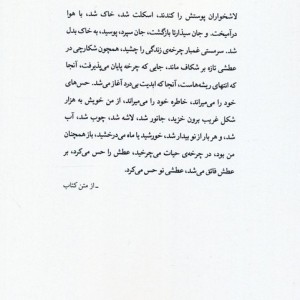 لاشخواران پوستش را کندند، اسکلت شد، خاک شد، با هوا
درآمیخت. و جان سیذارتا بازگشت، جان سپرد، پوسید، به خاک بدل
شد. سرمستی غمبار چرخه‌ی زندگی را چشید، همچون شکارچی در
عطشی تازه بر شکاف ماند، جایی که چرخه پایان می‌پذیرفت، آنجا
که انتهای ریشه‌هاست، آنجا که ابدیت بی‌درد آغاز می‌شد. حس‌های
خود را می‌میراند، خاطره خود را می‌میراند، از من خویش به هزار
شکل غریب برون خزید، جانور شد، لاشه شد، چوب شد، آب
شد، و هر بار از نو بیدار شد، خورشید یا ماه می‌درخشید، باز همچنان
من بود، در چرخه‌ی حیات می‌چرخید، عطش را حس می‌کرد، بر
عطش فائق می‌شد، عطشی نو حس می‌کرد.
ـ از متن کتاب